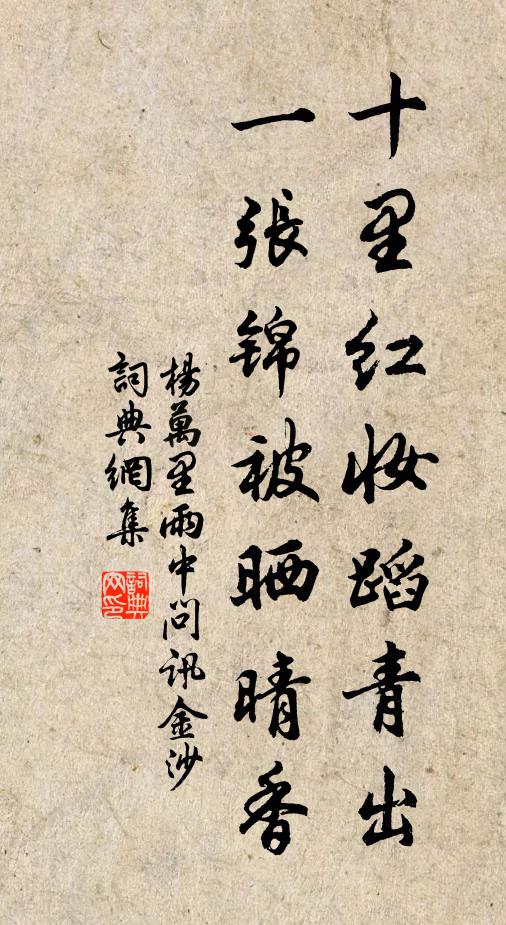 十里红妆蹈青出
一張锦被晒晴香
楊萬里雨中问訊金沙
詞典網集
詞典网印